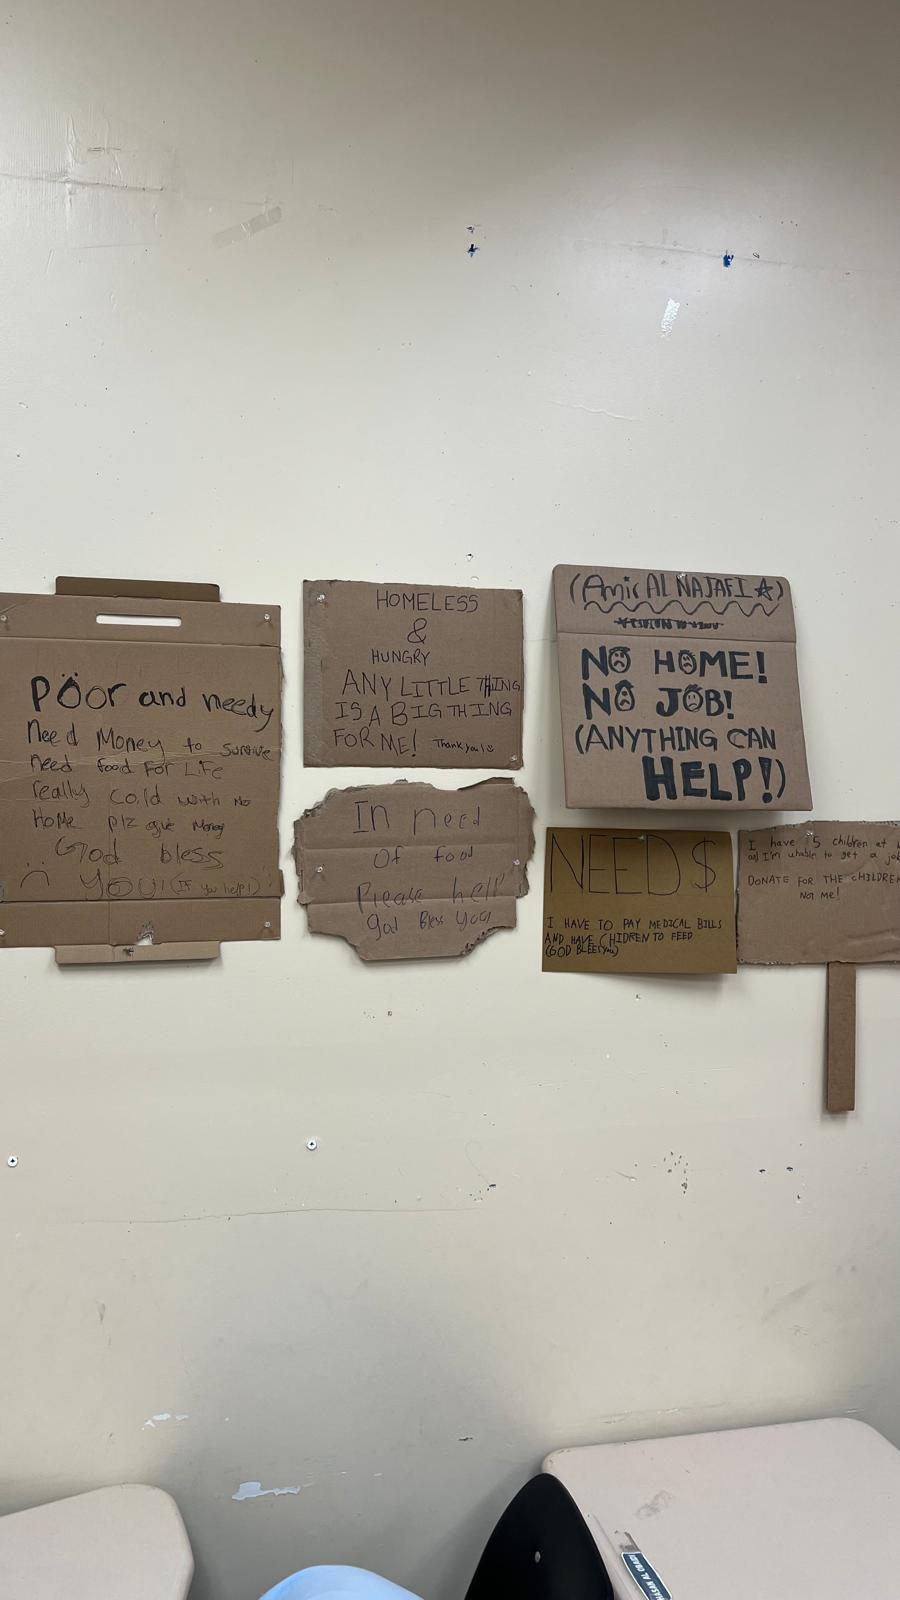 Poor and needy
Need Money to survive
need food For Life
really cold with no
Home plz give Money
God bless
you! (IF you help!)
HOMELESS
&
HUNGRY
ANY LITTLE THING
IS A BIG THING
FOR ME! Thank you!
In need
Of food
Please help
god Bless you
(Amir AL NAJAFI)
NO HOME!
NO JOB!
(ANYTHING CAN
HELP!)
NEED $
I HAVE TO PAY MEDICAL BILLS
AND HAVE CHIDREN TO FEED
(GOD BLEES you)
I have 5 children at
and I'm unable to get a job
DONATE FOR THE CHILDREN
Not me!
HASAN AL OBAIDI